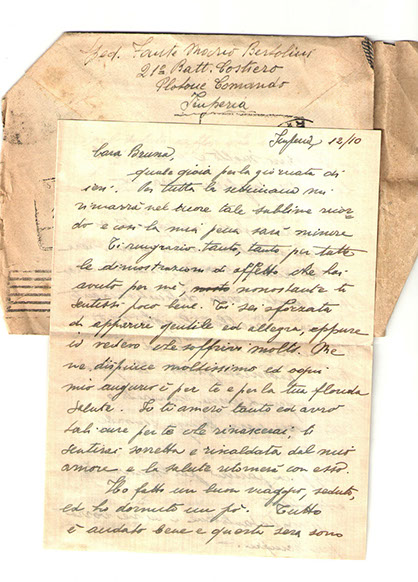 Sed. Fante Mario Bertolini
212 Batt. Costiero
Plotone Comando
Imperia
Imperia 12/10
Cara Bruna,
quale gioia per la giornata di
ieri. Per tutta la settimana mi
rimarrà nel cuore tale sublime ricor
do e così la mia pena sarà minore
Ti ringrazio tanto, tanto per tutte
le dimostrazioni di affetto che hai
avuto per me, nonostante ti
sentissi poco bene. Ti sei sforzata
di apparire gentile ed allegra, eppure
io vedevo che soffrivi molto. Me
ne dispiace moltissimo ed ogni
mio augurio è per te e per la tua florida
salute. Io ti amerò tanto ed avrò
tali cure per te che rinascerai, ti
sentirai sorretta e riscaldata dal mio
amore e la salute ritornerà con esso.
Ho fatto un buon viaggio, seduto,
ed ho dormito un pò. Tutto
è andato bene e questa sera sono